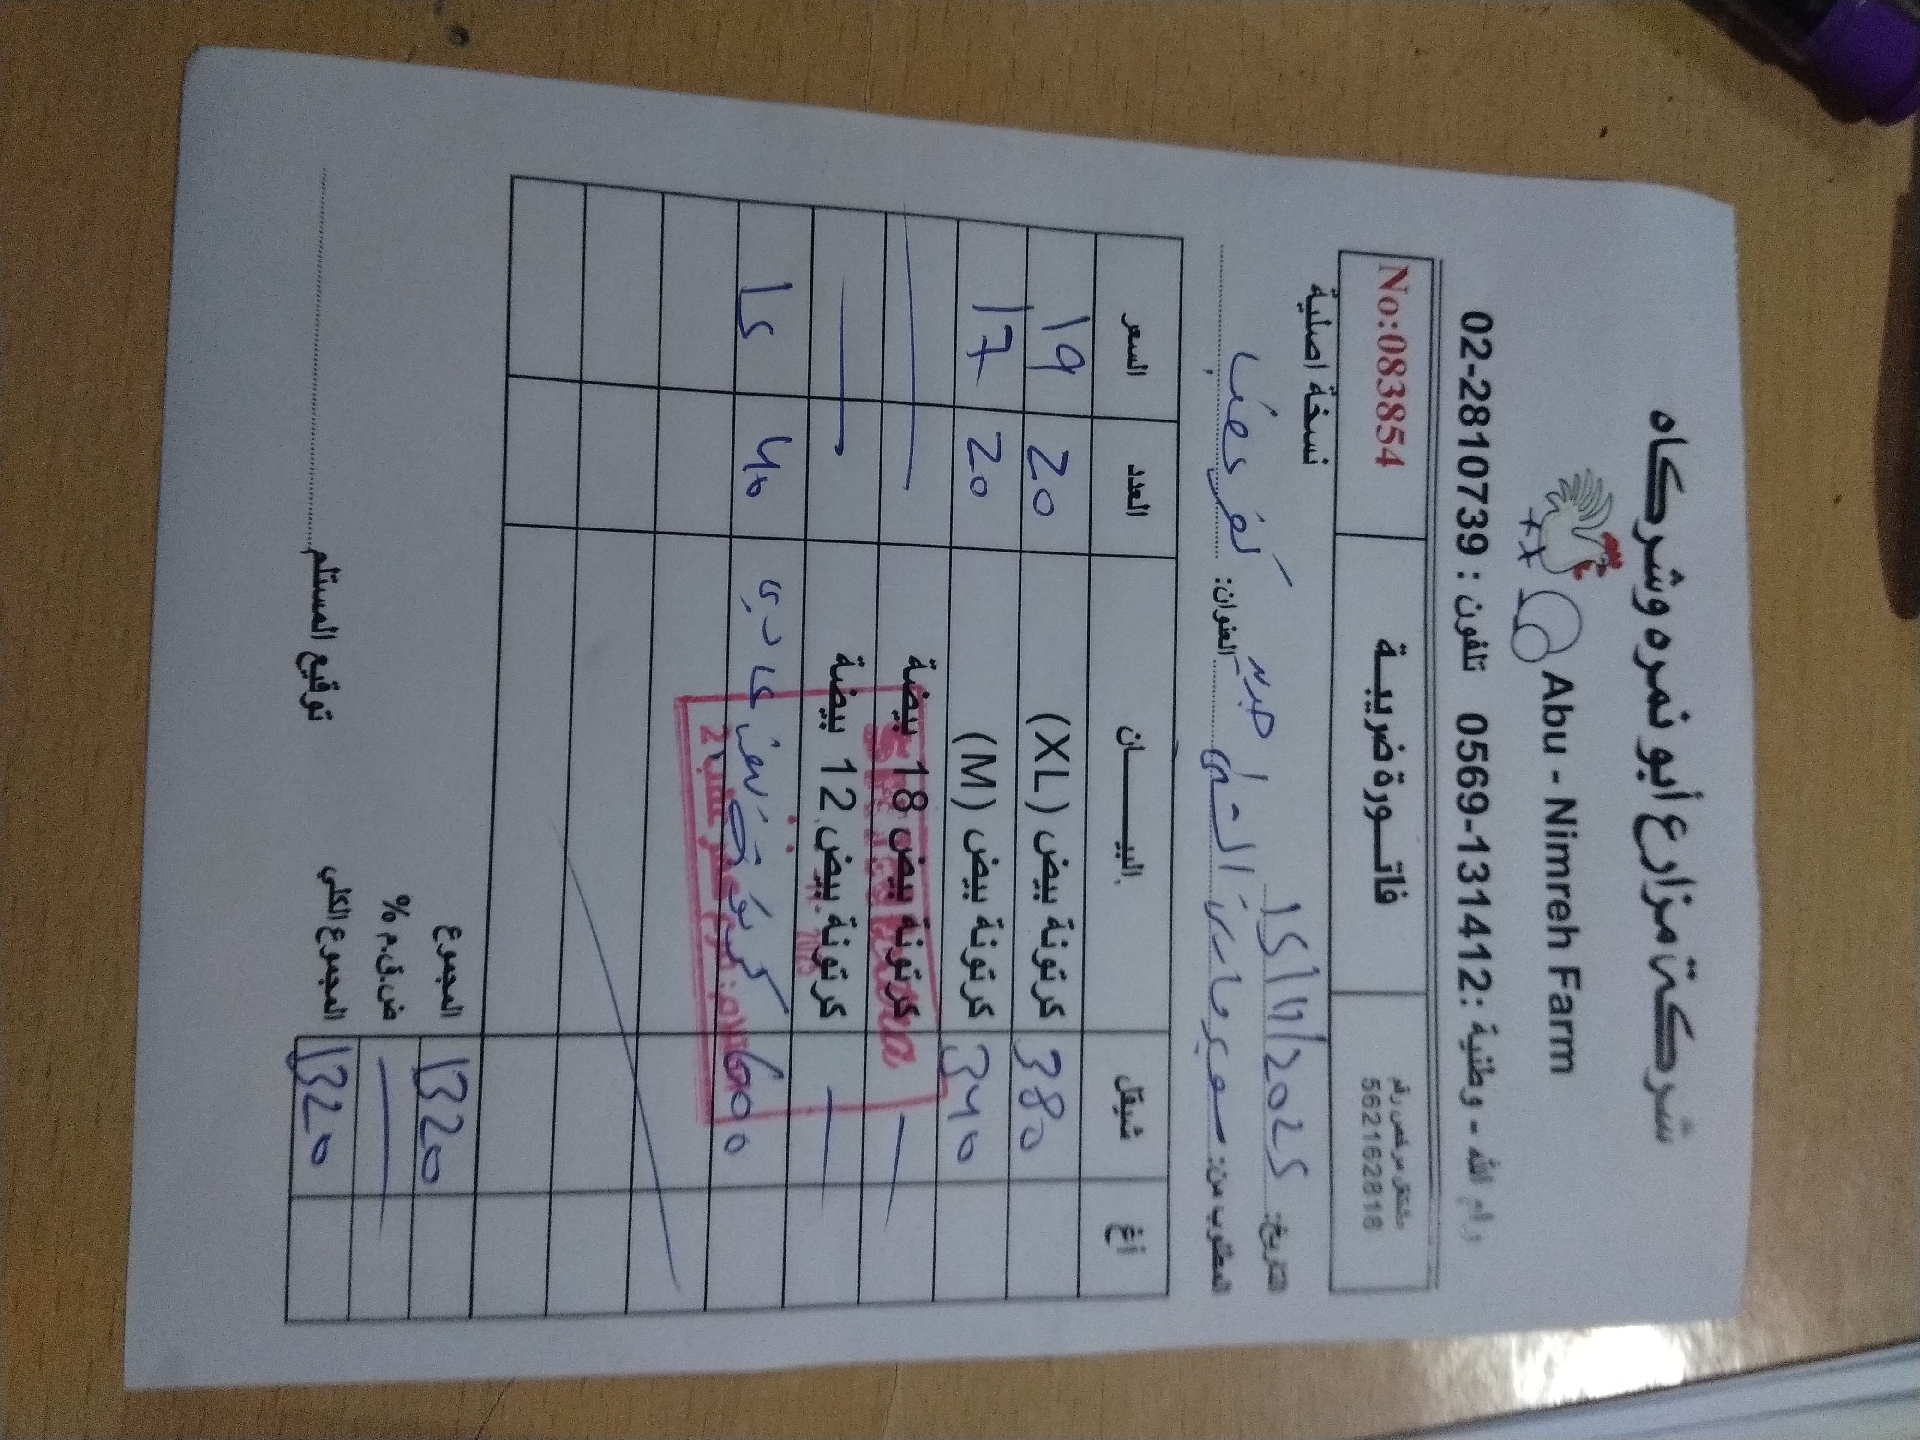 شركة مزارع أبو نمره وشركاه
Abu - Nimreh Farm
رام الله - وطنية : 0569-131412 تلفون : 02-2810739
مشتغل مرخص رقم
562162818
فاتورة ضريبية
No:083854
نسخة اصلية
التاريخ: 15/11/2025
المطلوب من: سوبر ماركت العنوان: كفر عقب
شيقل اغ البيان العدد السعر
380 كرتونة بيض (XL) 20 19
340 كرتونة بيض (M) 20 17
— كرتونة بيض 18 بيضة —
— كرتونة بيض 12 بيضة —
600 كرتونة بيض عادي 40 15
المجموع 1320
ض.ق.م % —
المجموع الكلي 1320
توقيع المستلم